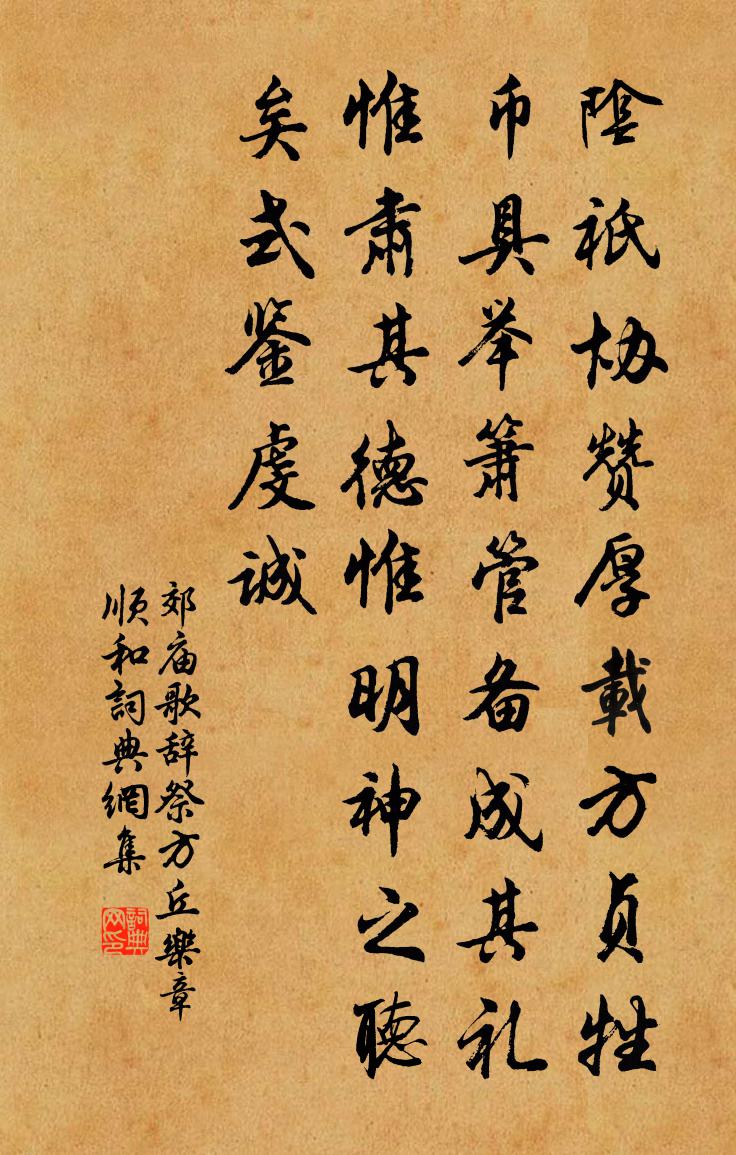 陰祇协赞厚載方贞牲
币具举箫管备成其礼
惟肃其德惟明神之聽
矣式鉴虔诚
郊庙歌辞祭方丘樂章
順和詞典網集
詞典网印